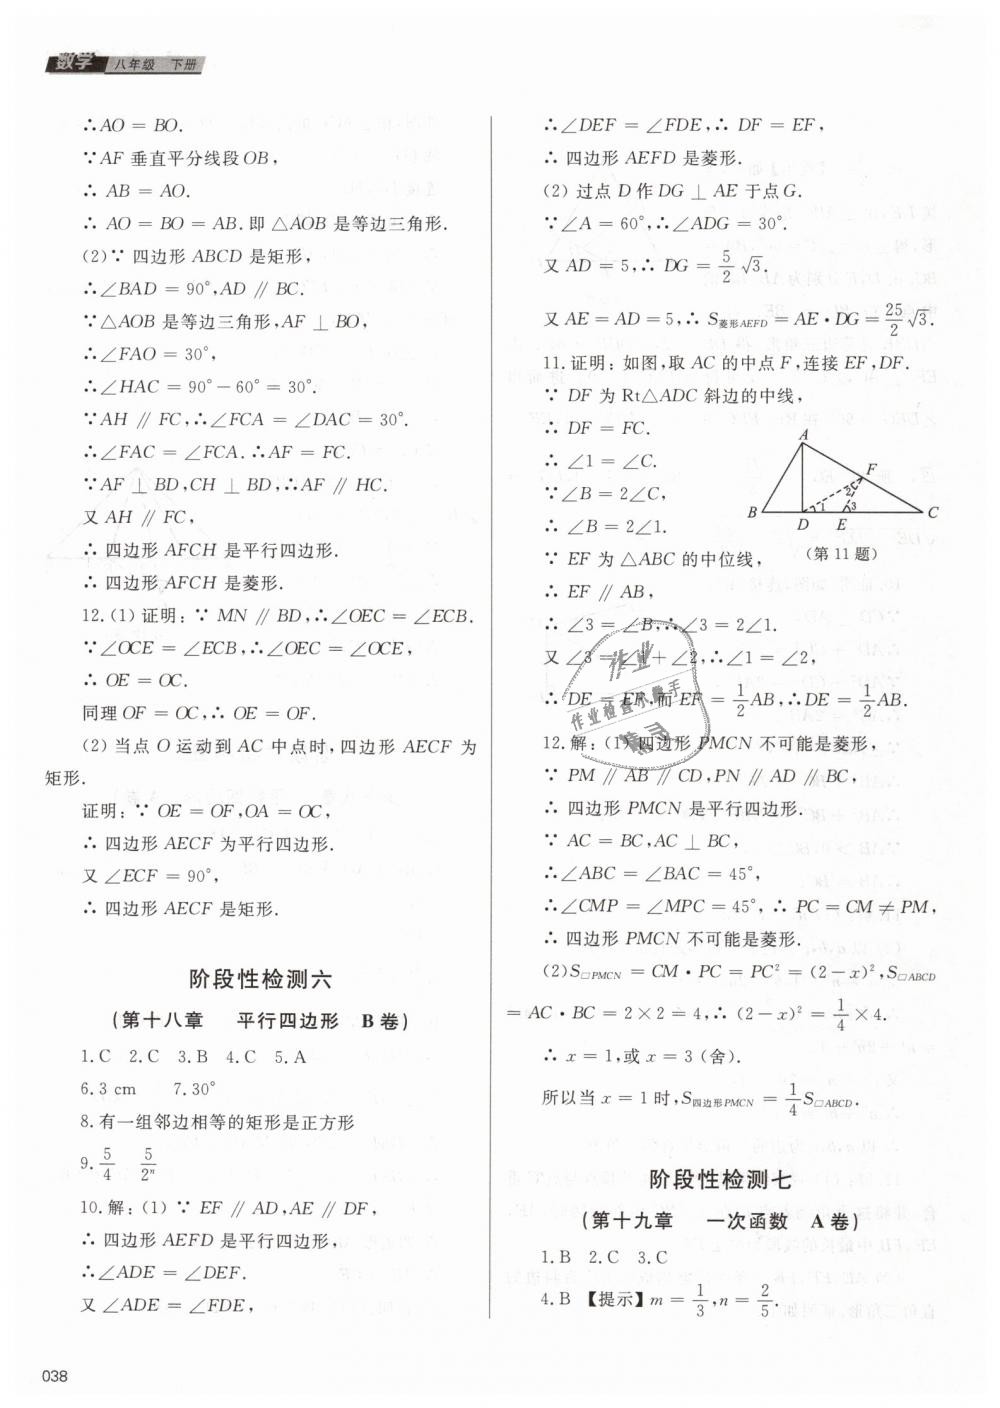 数学 八年级 下册
∴AO = BO.
∵AF 垂直平分线段 OB，
∴ AB = AO.
∴ AO = BO = AB. 即 △AOB 是等边三角形.
(2)∵ 四边形 ABCD 是矩形，
∴∠BAD = 90°, AD ∥ BC.
∵△AOB 是等边三角形, AF ⊥ BO，
∴∠FAO = 30°，
∴∠HAC = 90° − 60° = 30°.
∵AH ∥ FC, ∴∠FCA = ∠DAC = 30°.
∴∠FAC = ∠FCA. ∴AF = FC.
∵AF ⊥ BD, CH ⊥ BD, ∴AF ∥ HC.
又 AH ∥ FC，
∴ 四边形 AFCH 是平行四边形.
∴ 四边形 AFCH 是菱形.
12.(1) 证明：∵ MN ∥ BD, ∴∠OEC = ∠ECB.
∵∠OCE = ∠ECB, ∴∠OEC = ∠OCE，
∴ OE = OC.
同理 OF = OC, ∴ OE = OF.
(2) 当点 O 运动到 AC 中点时，四边形 AECF 为
矩形.
证明：∵ OE = OF, OA = OC，
∴ 四边形 AECF 为平行四边形.
又 ∠ECF = 90°，
∴ 四边形 AECF 是矩形.
阶段性检测六
(第十八章 平行四边形 B 卷)
1.C 2.C 3.B 4.C 5.A
6.3 cm 7.30°
8.有一组邻边相等的矩形是正方形
9. 5/4 5/2ⁿ
10.解：(1) ∵ EF ∥ AD, AE ∥ DF，
∴ 四边形 AEFD 是平行四边形，
∴∠ADE = ∠DEF.
又 ∠ADE = ∠FDE，
∴∠DEF = ∠FDE, ∴ DF = EF，
∴ 四边形 AEFD 是菱形.
(2) 过点 D 作 DG ⊥ AE 于点 G.
∵∠A = 60°, ∴∠ADG = 30°.
又 AD = 5, ∴ DG = 5/2 √3.
又 AE = AD = 5, ∴ S菱形AEFD = AE · DG = 25/2 √3.
11.证明：如图，取 AC 的中点 F，连接 EF, DF.
∵ DF 为 Rt△ADC 斜边的中线，
∴ DF = FC.
∴ ∠1 = ∠C.
∵∠B = 2∠C，
∴ ∠B = 2∠1.
∵ EF 为 △ABC 的中位线，
∴ EF ∥ AB，
∴ ∠3 = ∠B, ∴∠3 = 2∠1.
又 ∠3 = ∠1 + ∠2, ∴∠1 = ∠2，
∴ DE = EF, 而 EF = 1/2 AB, ∴DE = 1/2 AB.
A
F
B D E C
1 2 3
(第 11 题)
作业
作业检查小帮手
精灵
12.解：(1) 四边形 PMCN 不可能是菱形，
∵ PM ∥ AB ∥ CD, PN ∥ AD ∥ BC，
∴ 四边形 PMCN 是平行四边形.
∵ AC = BC, AC ⊥ BC，
∴∠ABC = ∠BAC = 45°，
∴∠CMP = ∠MPC = 45°, ∴ PC = CM ≠ PM，
∴ 四边形 PMCN 不可能是菱形.
(2) S▱PMCN = CM · PC = PC² = (2 − x)², S▱ABCD
= AC · BC = 2 × 2 = 4, ∴ (2 − x)² = 1/4 × 4.
∴ x = 1, 或 x = 3 (舍).
所以当 x = 1 时, S四边形PMCN = 1/4 S▱ABCD.
阶段性检测七
(第十九章 一次函数 A 卷)
1.B 2.C 3.C
4.B 【提示】m = 1/3, n = 2/5.
038